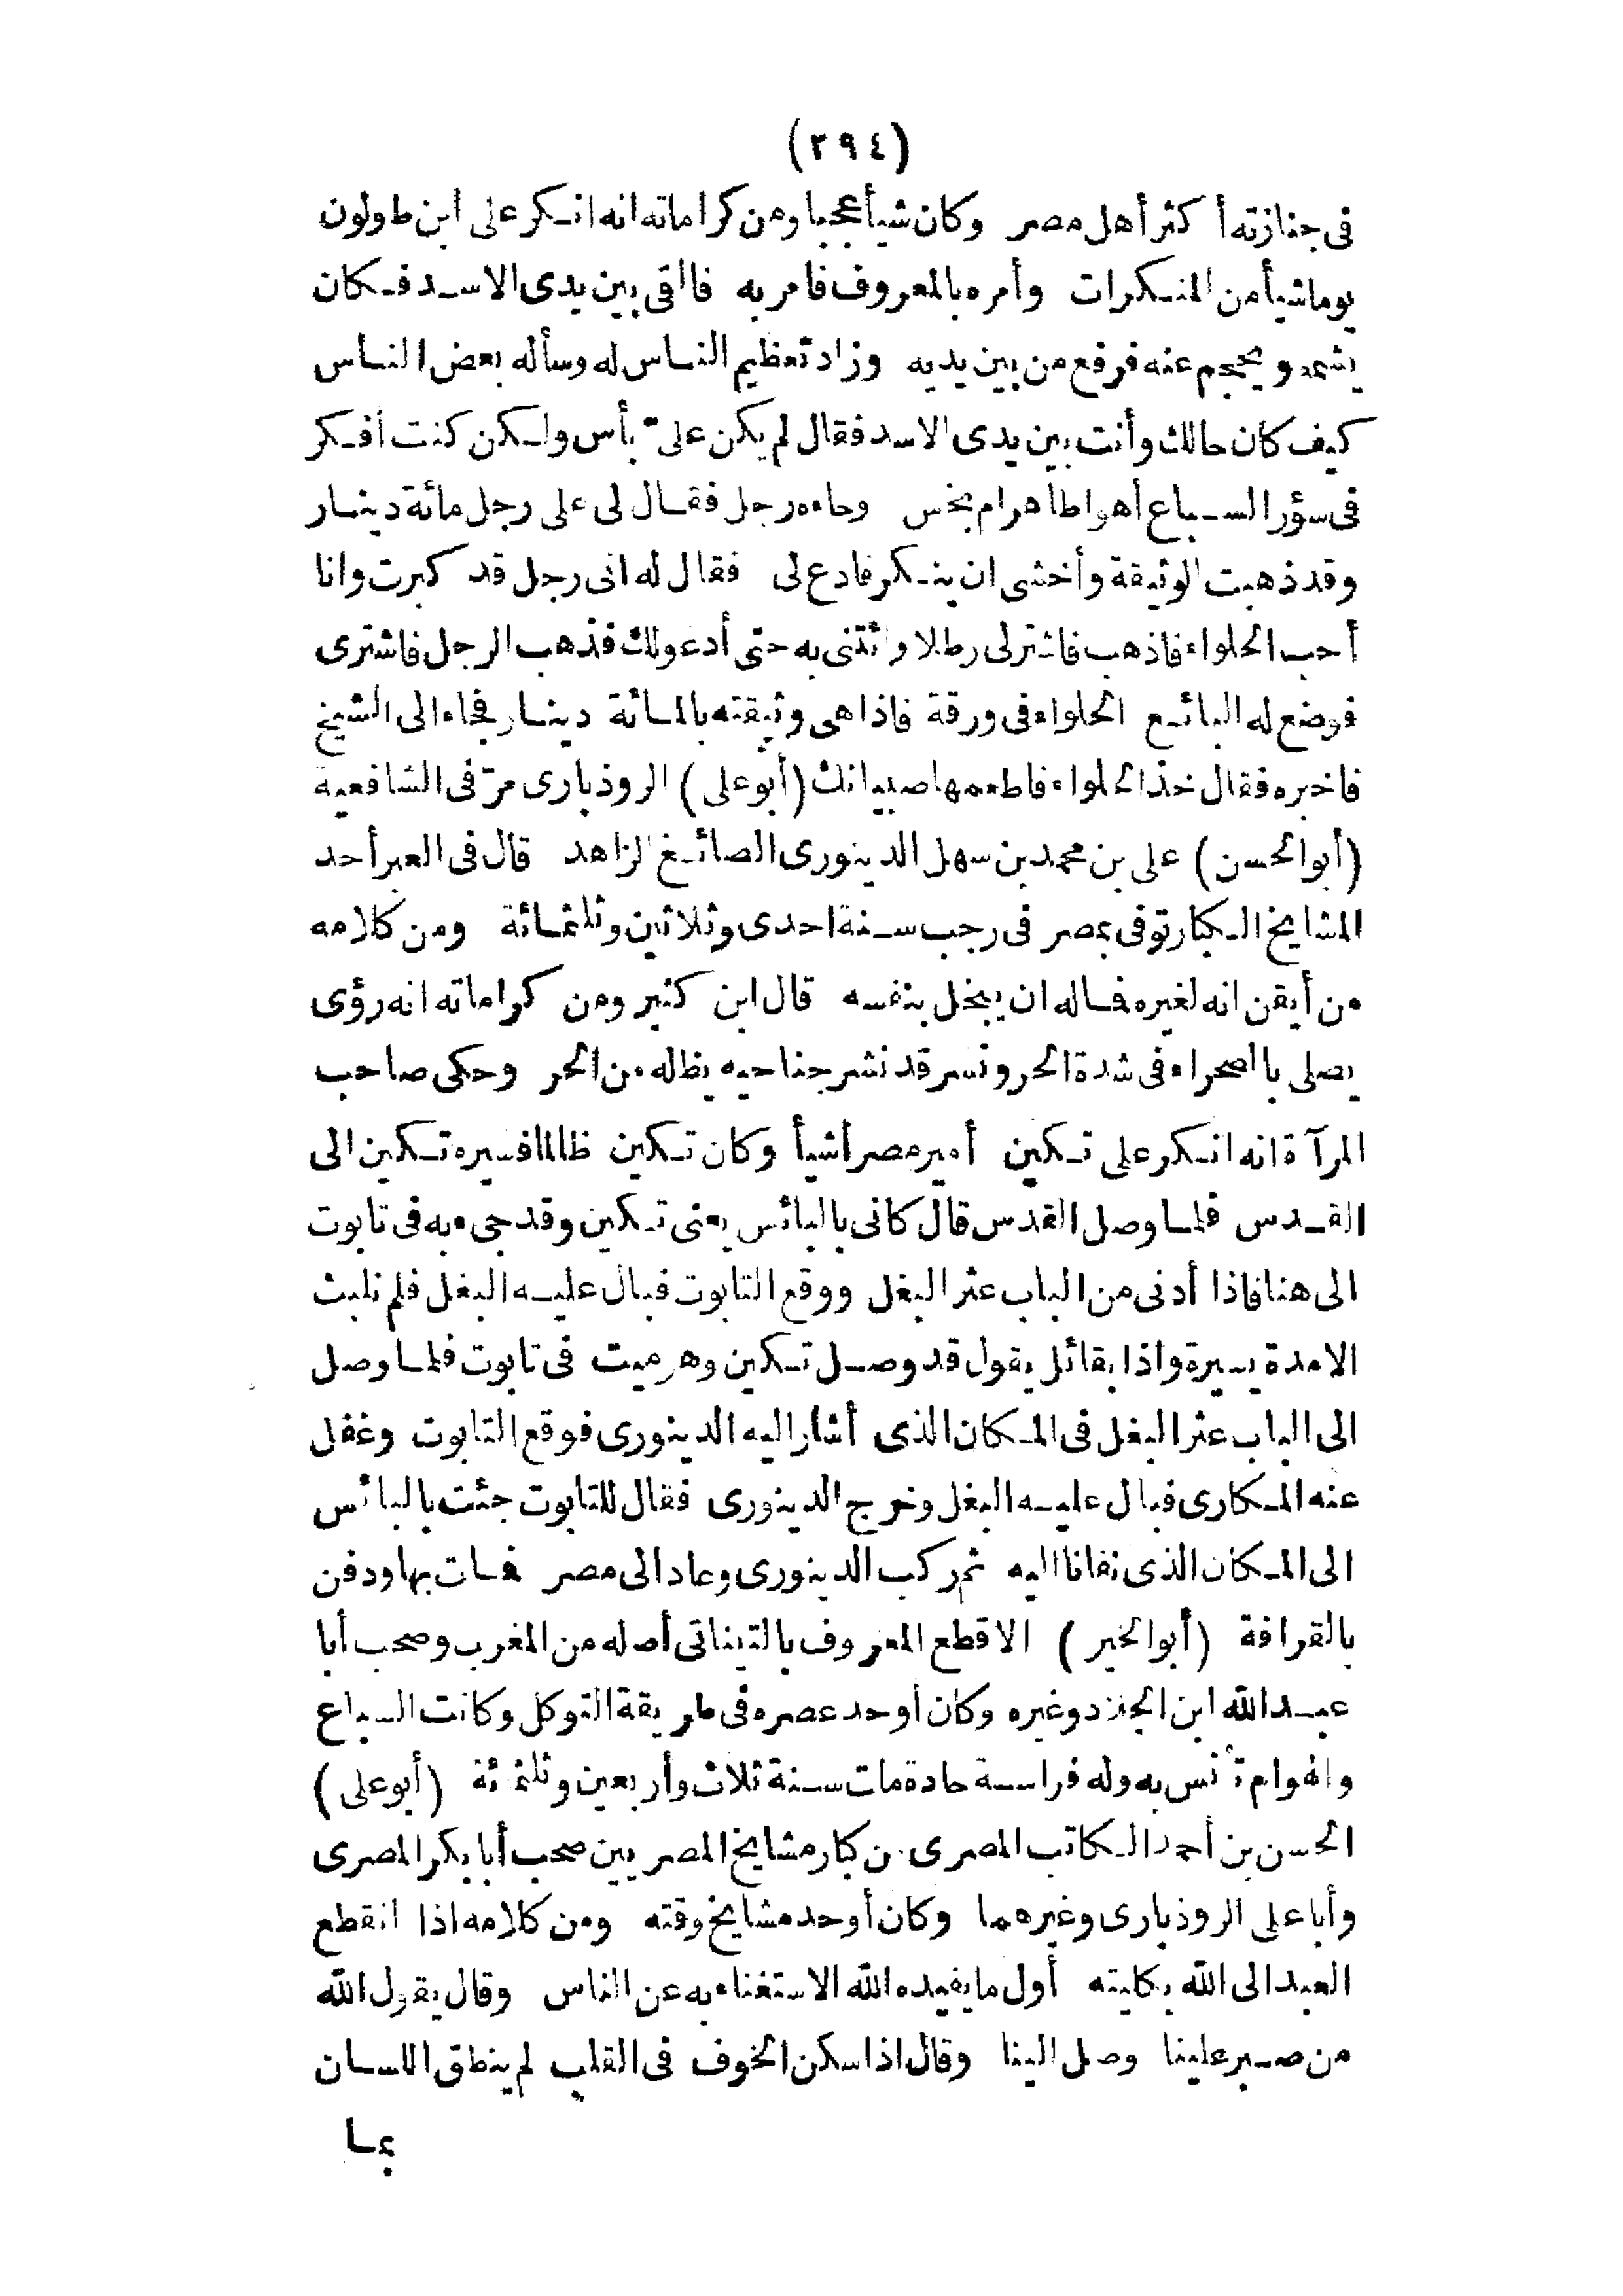 (٢٩٤)
فى جنازته أكثر أهل مصر وكان شيأ عجبا ومن كراماته انه انكر على ابن طولون
يوما شيأ من المنكرات وأمره بالمعروف فامر به فالقى بين يدى الاسد فكان
يشمه ويحجم عنه فرفع من بين يديه وزاد تعظيم الناس له وسأله بعض الناس
كيف كان حالك وأنت بين يدى الاسد فقال لم يكن علىّ بأس ولكن كنت أفكر
فى سؤر السباع أهو طاهر ام نجس وجاءه رجل فقال لى على رجل مائة دينار
وقد ذهبت الوثيقة وأخشى ان ينكر فادع لى فقال له انى رجل قد كبرت وانا
أحب الحلواء فاذهب فاشتر لى رطلا وائتنى به حتى أدعو لك فذهب الرجل فاشترى
فوضع له البائع الحلواء فى ورقة فاذا هى وثيقته بالمائة دينار فجاء الى الشيخ
فاخبره فقال خذ الحلواء فاطعمها صبيانك (أبو على) الروذبارى مرّ فى الشافعية
(أبو الحسن) على بن محمد بن سهل الدينورى الصائغ الزاهد قال فى العبر أحد
المشايخ الكبار توفى بمصر فى رجب سنة احدى وثلاثين وثلثمائة ومن كلامه
من أيقن انه لغيره فماله ان يبخل بنفسه قال ابن كثير ومن كراماته انه رؤى
يصلى بالصحراء فى شدة الحر ونسر قد نشر جناحيه يظله من الحر وحكى صاحب
المرآة انه انكر على تكين أمير مصر أشيأ وكان تكين ظالما فسيره تكين الى
القدس فلما وصل القدس قال كانى بالبائس يعنى تكين وقد جىء به فى تابوت
الى هنا فاذا أدنى من الباب عثر البغل ووقع التابوت فبال عليه البغل فلم نلبث
الا مدة يسيرة واذا بقائل يقول قد وصل تكين وهو ميت فى تابوت فلما وصل
الى الباب عثر البغل فى المكان الذى أشار اليه الدينورى فوقع التابوت وغفل
عنه المكارى فبال عليه البغل وخرج الدينورى فقال للتابوت جئت بالبائس
الى المكان الذى نفانا اليه ثم ركب الدينورى وعاد الى مصر فمات بها ودفن
بالقرافة (أبو الخير) الاقطع المعروف بالتيناتى أصله من المغرب وصحب أبا
عبد الله ابن الجلاء وغيره وكان أوحد عصره فى طريقة التوكل وكانت السباع
والهوام تأنس به وله فراسة حادة مات سنة ثلاث وأربعين وثلثمائة (أبو على)
الحسن بن أحمد الكاتب المصرى من كبار مشايخ المصريين صحب أبا بكر المصرى
وأبا على الروذبارى وغيرهما وكان أوحد مشايخ وقته ومن كلامه اذا انقطع
العبد الى الله بكليته أول ما يفيده الله الاستغناء به عن الناس وقال يقول الله
من صبر علينا وصل الينا وقال اذا سكن الخوف فى القلب لم ينطق اللسان
بما